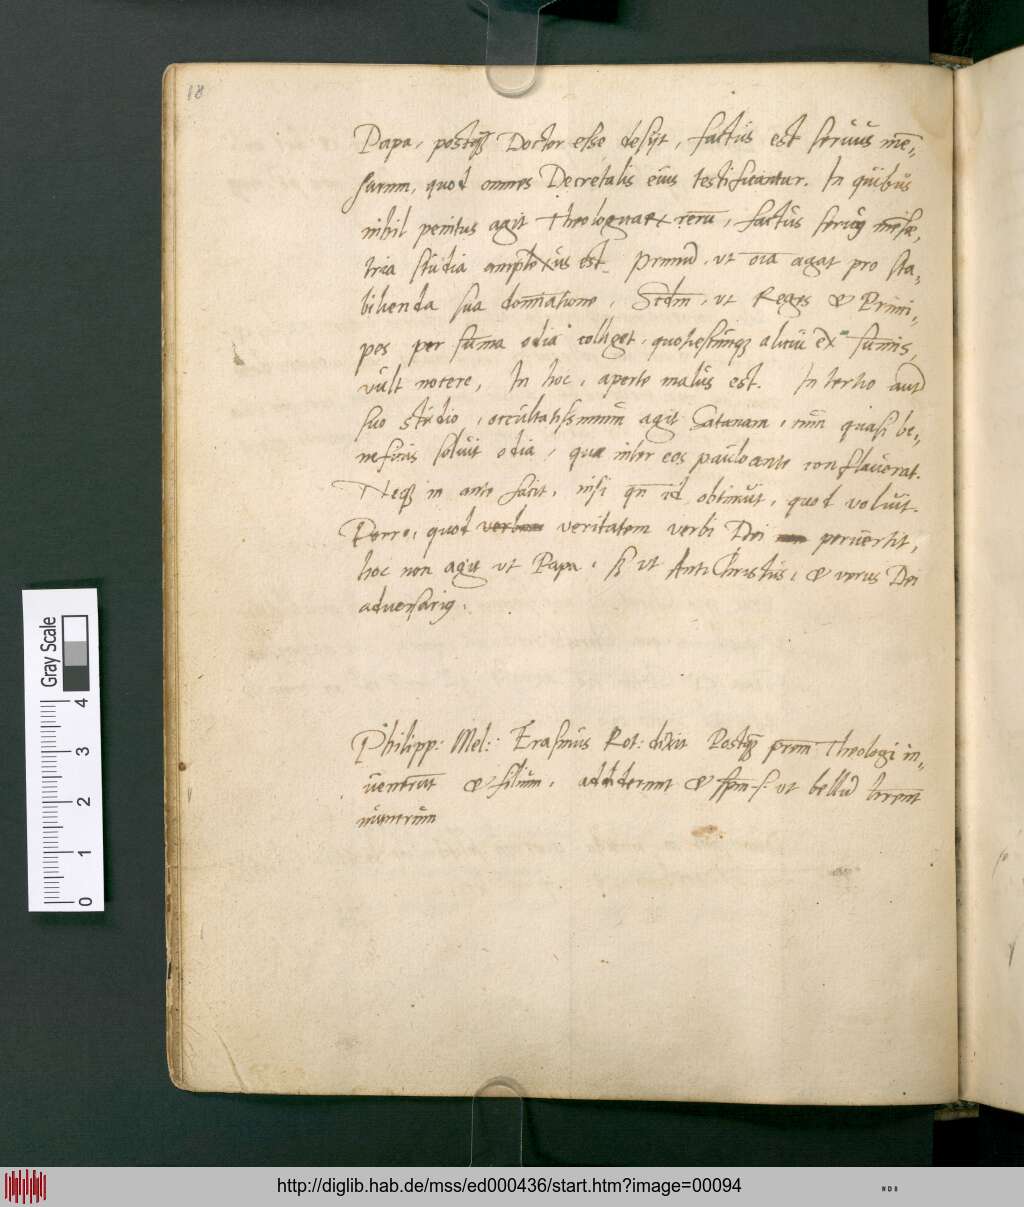 18
Papa, postq̃ Doctor esse desijt, factus est seruus mẽ-
sarum, quod omnes Decretalis eius testificantur. In quibus
nihil penitus agit Theologicarx rerũ, factus seruꝯ mẽsæ,
tria studia amplexus est. Primũ, ut oĩa agat pro sta-
bilienda sua dom̃atione, Scdm̃, ut Reges & Princi-
pes per sum̃a odia colliget, quotiescunqꝫ alicui ex sum̃is,
vult nocere, In hoc, aperte malus est. In tertio autẽ
suo studio, occultatissimum agit Satanam, cum quasi be-
neficius soluit odia, quæ inter eos pauloante conflauerat.
Neqꝫ id ante facit, nisi qñ id obtinuit, quod voluit.
Porro, quod verbum veritatem verbi Dei non peruertit,
hoc non agit ut Papa, sꝫ ut AntiChristus, & verus Dei
aduersariꝯ.
Philipp: Mel: Erasmus Rot: dixit Postq̃ prem̃ Theologi in-
uenerũt & filium, addiderunt & spm̃ s: ut bellũ ternũ
numerum
Gray Scale
4
3
2
1
0
http://diglib.hab.de/mss/ed000436/start.htm?image=00094